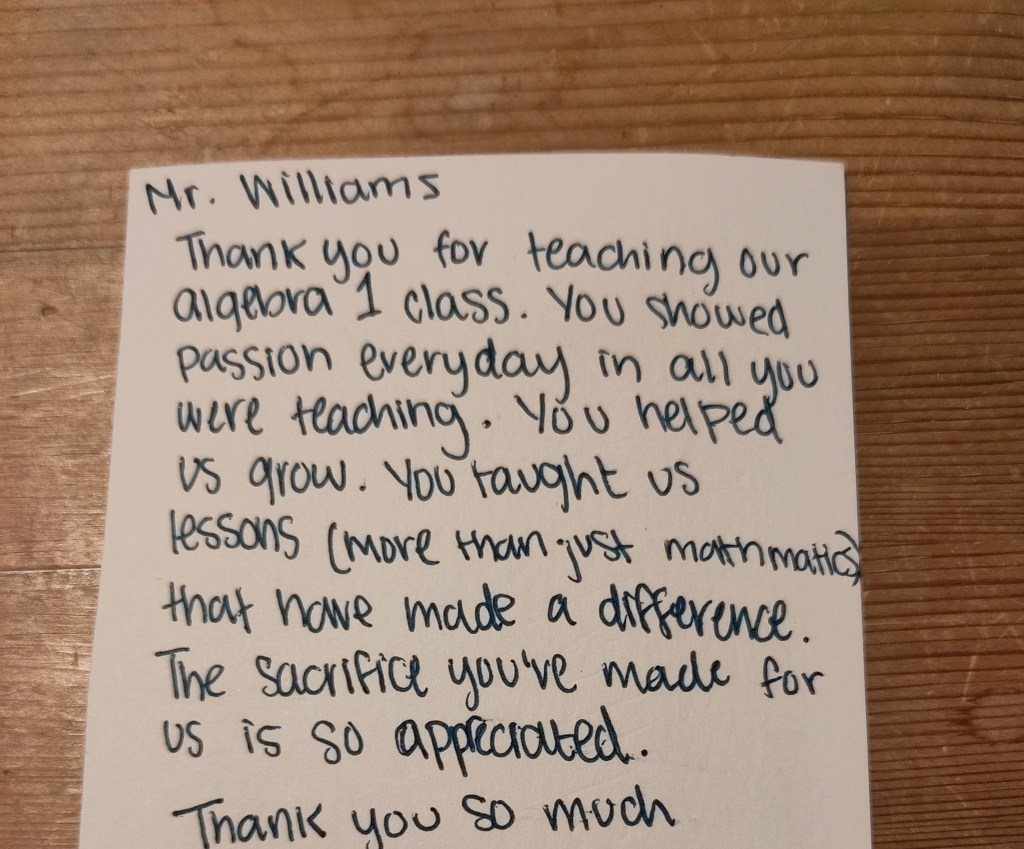 Mr. Williams
Thank you for teaching our
algebra 1 class. You showed
passion everyday in all you
were teaching. You helped
us grow. You taught us
lessons (more than just mathmatics)
that have made a difference.
The sacrifice you've made for
us is so appreciated.
Thank you so much